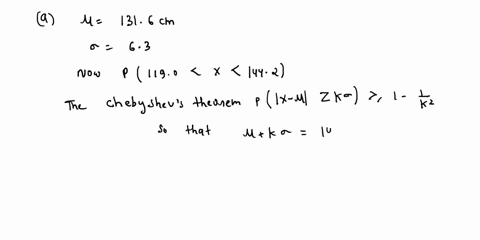 (a) μ = 131.6 cm
σ = 6.3
Now P ( 119.0 < x < 144.2 )
The chebyshev's theorem P ( |x-μ| Z Kσ ) >, 1 - 1/K²
so that μ + k σ = 14